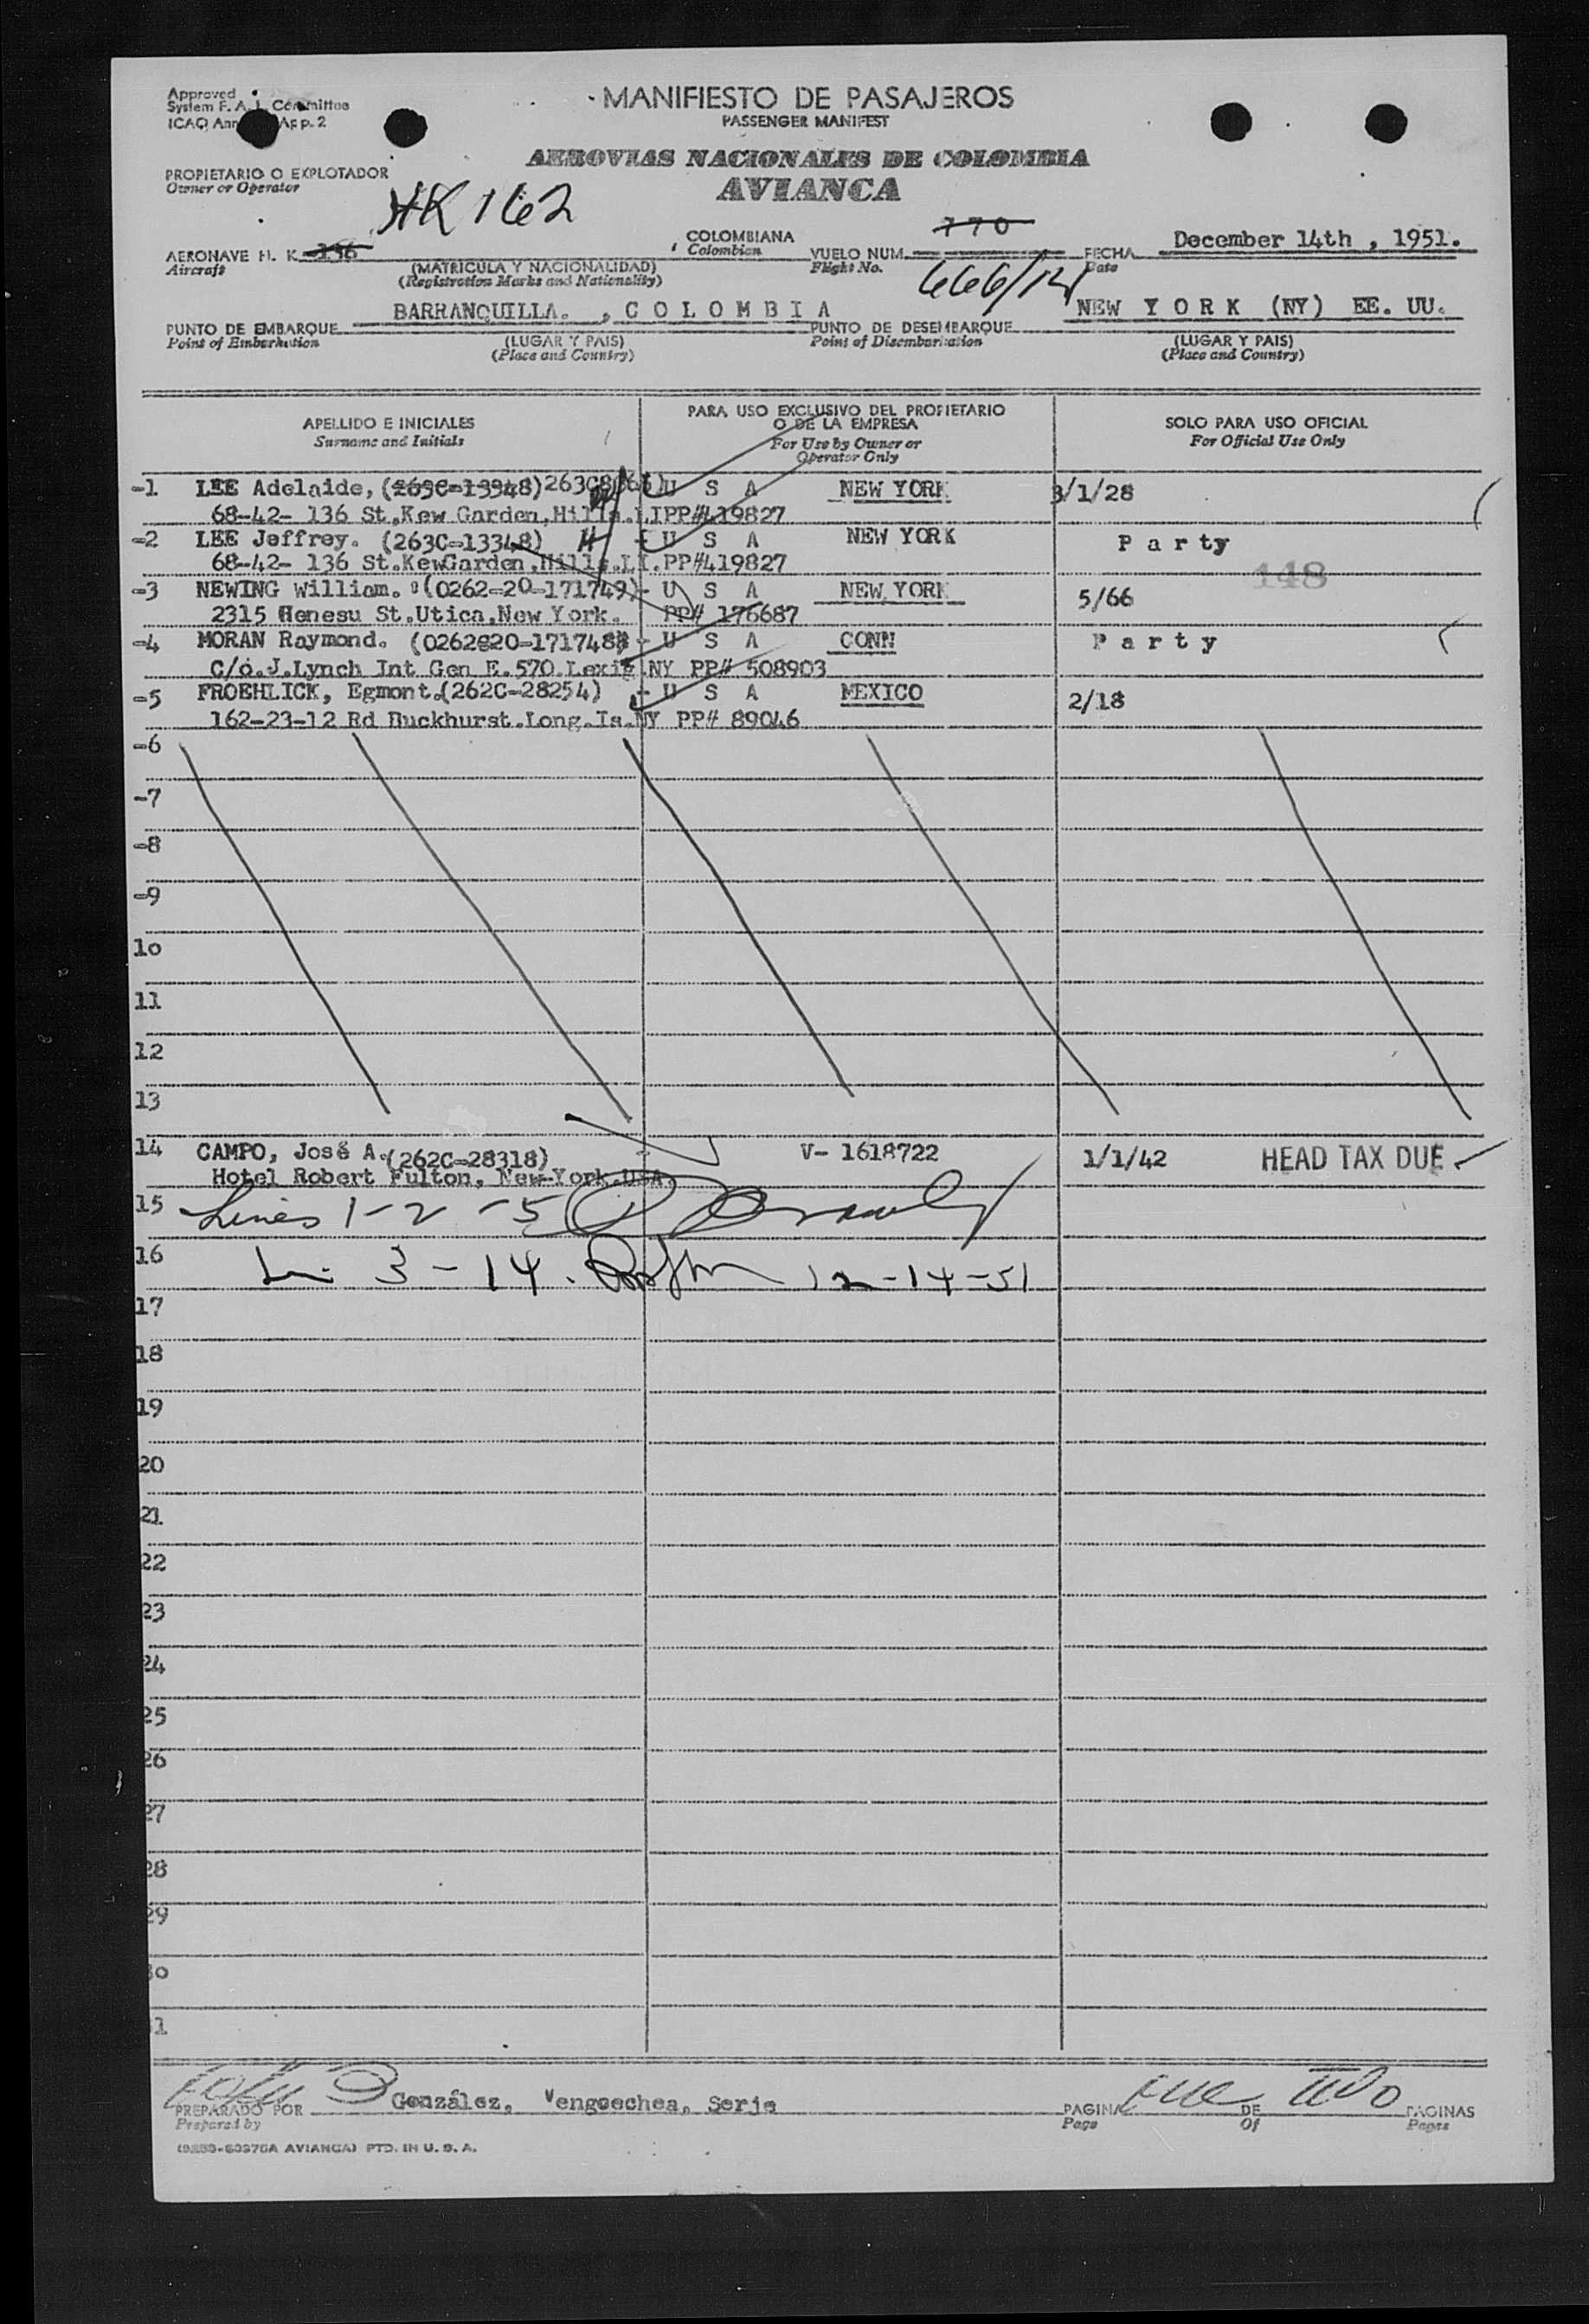 Approved
System F. A. L. Committee
ICAO App. 2
MANIFIESTO DE PASAJEROS
PASSENGER MANIFEST
AEROVIAS NACIONALES DE COLOMBIA
AVIANCA
PROPIETARIO O EXPLOTADOR
Owner or Operator
HK 162
770
AERONAVE H. K. 156
Aircraft
(MATRICULA Y NACIONALIDAD)
(Registration Marks and Nationality)
COLOMBIANA
Colombian
VUELO NUM.
Flight No.
666/14
FECHA December 14th , 1951.
Date
PUNTO DE EMBARQUE BARRANQUILLA. , C O L O M B I A
Point of Embarkation
(LUGAR Y PAIS)
(Place and Country)
PUNTO DE DESEMBARQUE NEW Y O R K (NY) EE. UU.
Point of Disembarkation
(LUGAR Y PAIS)
(Place and Country)
APELLIDO E INICIALES
Surname and Initials
PARA USO EXCLUSIVO DEL PROPIETARIO
O DE LA EMPRESA
For Use by Owner or
Operator Only
SOLO PARA USO OFICIAL
For Official Use Only
-1 LEE Adelaide, (263C-13948) U S A NEW YORK 3/1/28
68-42- 136 St.Kew Garden,Hills.LIPP#419827
-2 LEE Jeffrey. (263C-13348) H - U S A NEW YORK P a r t y
68-42- 136 St.KewGarden,Hills.LI.PP#419827
148
-3 NEWING William. (0262-20-171749)- U S A NEW YORK 5/66
2315 Henesu St.Utica,New York. PP# 176687
-4 MORAN Raymond. (0262-20-171748) - U S A CONN P a r t y
C/o.J.Lynch Int Gen E.570 Lexig.NY PP# 508903
-5 FROEHLICK, Egmont.(262C-28254) - U S A MEXICO 2/18
162-23-12 Rd Buckhurst.Long.Is.NY PP# 89046
-6
-7
-8
-9
10
11
12
13
14 CAMPO, José A.(262C-28318) - V- 1618722 1/1/42 HEAD TAX DUE
Hotel Robert Fulton, New-York.USA.
15 Lines 1-2-5
16 3-14. 12-14-51
17
18
19
20
21
22
23
24
25
26
27
28
29
30
31
PREPARADO POR González, Vengoechea, Serje
Prepared by
PAGINA one DE two PAGINAS
Page Of Pages
(9233-60375A AVIANCA) PTD. IN U. S. A.